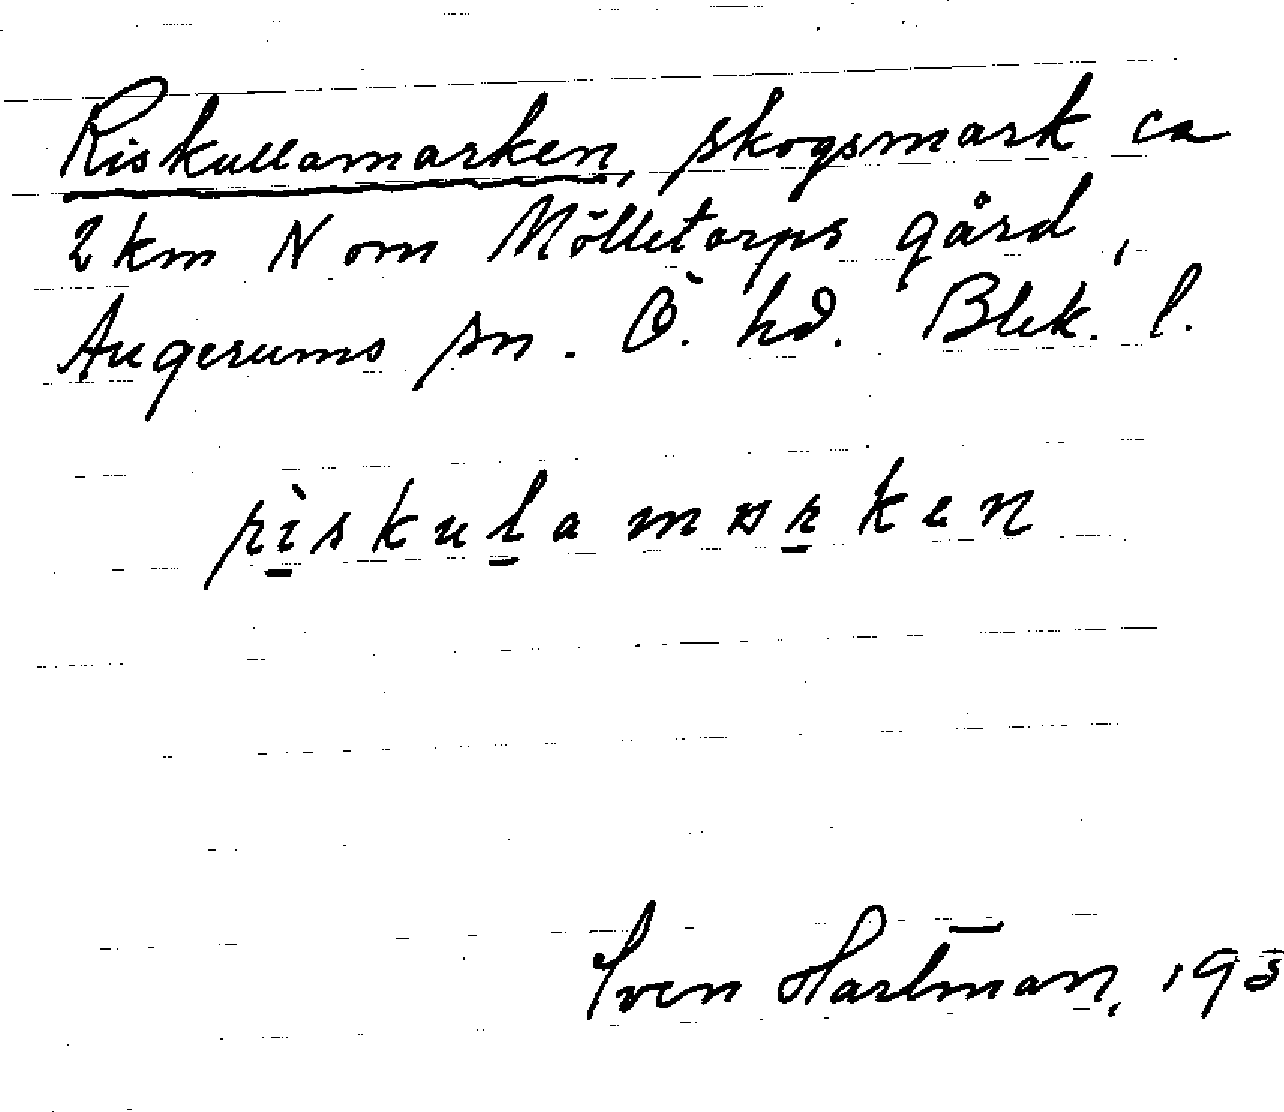 Riskullamarken, skogsmark ca
2 km N om Mölletorps gård,
Augerums sn. Ö. hd. Blek. l.
riskulamarken
Sven Hartman, 193